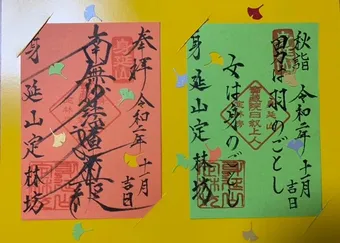 秋詣 令和二年 十一月吉日
男は羽のごとし
女は身のごとし
身延山定林坊
奉拝 令和二年 十一月吉日
南無妙法蓮華経
身延山定林坊